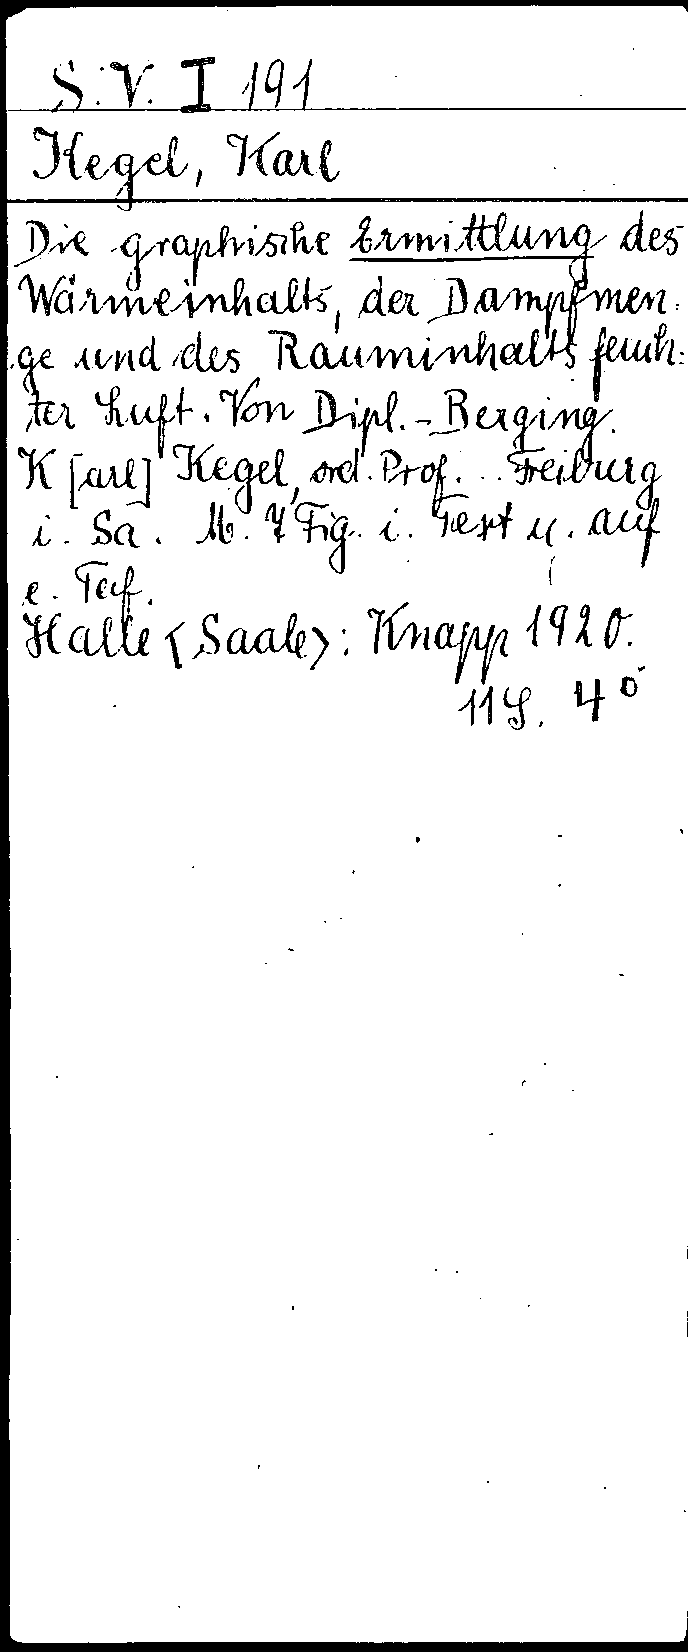 S. V. I 191
Kegel, Karl
Die graphische Ermittlung des
Wärmeinhalts, der Dampfmen-
ge und des Rauminhalts feuch-
ter Luft. Von Dipl.-Berging.
K[arl] Kegel, ord. Prof. .. Freiburg
i. Sa. M. 7 Fig. i. Text u. auf
e. Taf.
Halle <Saale>: Knapp 1920.
11 S. 4°